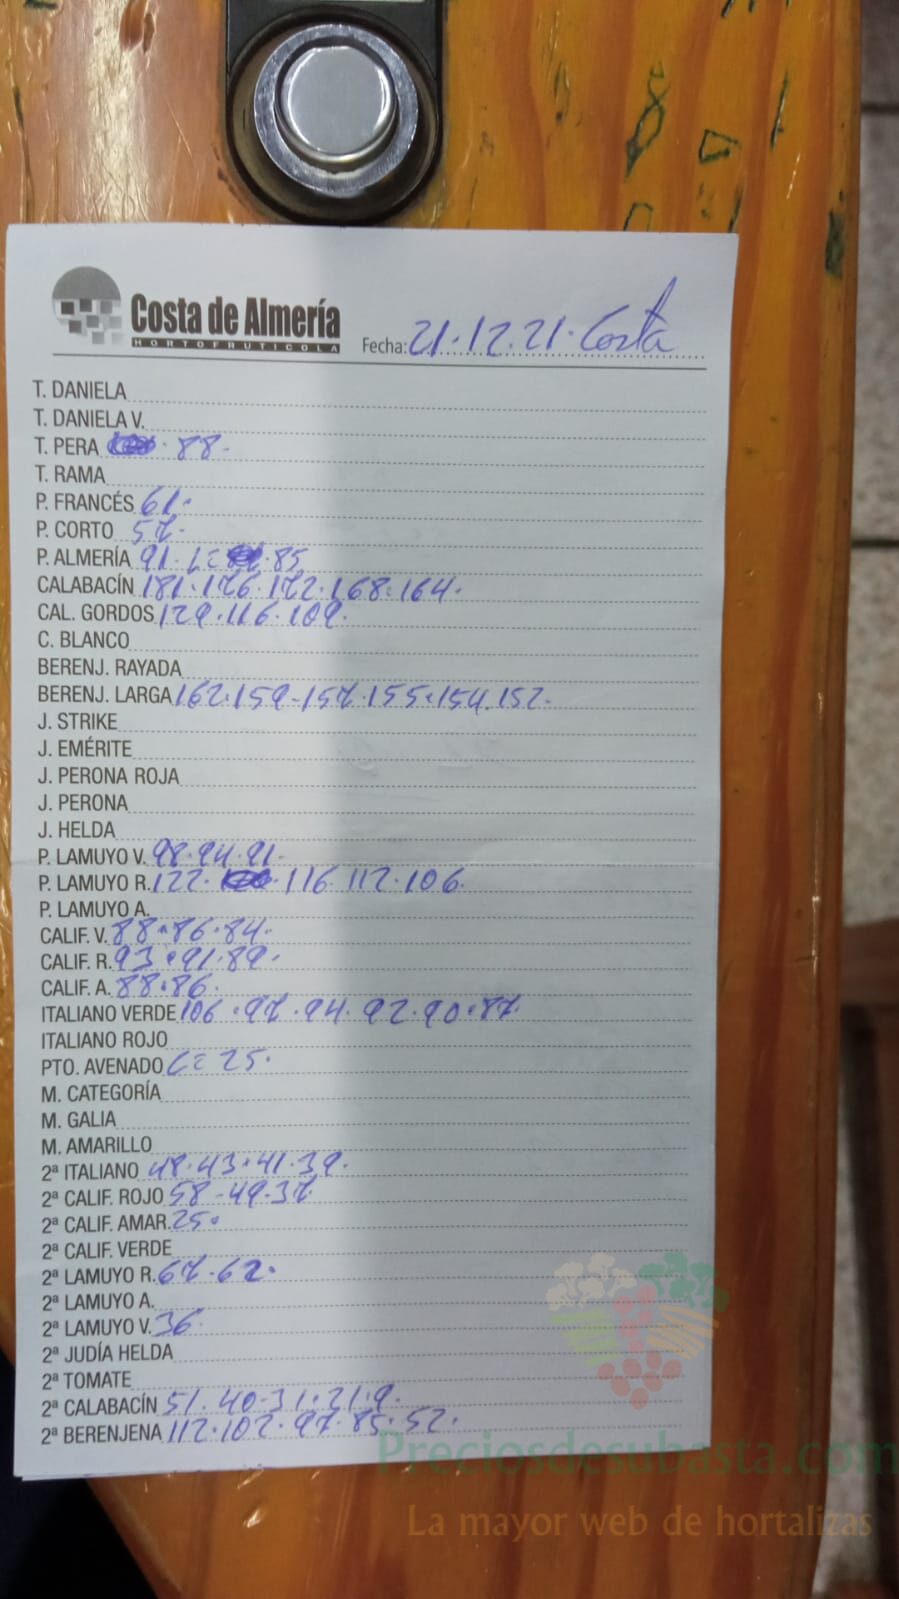 Costa de Almería
HORTOFRUTICOLA
Fecha: 21.12.21. Costa
T. DANIELA
T. DANIELA V.
T. PERA 88.
T. RAMA
P. FRANCÉS 61.
P. CORTO 57.
P. ALMERÍA 91. L= 85
CALABACÍN 181.176.172.168.164.
CAL. GORDOS 129.116.109.
C. BLANCO
BERENJ. RAYADA
BERENJ. LARGA 162.159-157.155.154.152.
J. STRIKE
J. EMÉRITE
J. PERONA ROJA
J. PERONA
J. HELDA
P. LAMUYO V. 98.94.91.
P. LAMUYO R. 122. 116 112.106.
P. LAMUYO A.
CALIF. V. 88.86.84.
CALIF. R. 93.91.89.
CALIF. A. 88.86.
ITALIANO VERDE 106.97.94.92.90.87.
ITALIANO ROJO
PTO. AVENADO C= 25.
M. CATEGORÍA
M. GALIA
M. AMARILLO
2ª ITALIANO 48.43.41.39.
2ª CALIF. ROJO 58-49.37
2ª CALIF. AMAR. 25.
2ª CALIF. VERDE
2ª LAMUYO R. 67.62.
2ª LAMUYO A.
2ª LAMUYO V. 36.
2ª JUDÍA HELDA
2ª TOMATE
2ª CALABACÍN 51.40-31.21.9.
2ª BERENJENA 112.102.97.85.52.
Preciosdesubasta.com
La mayor web de hortalizas